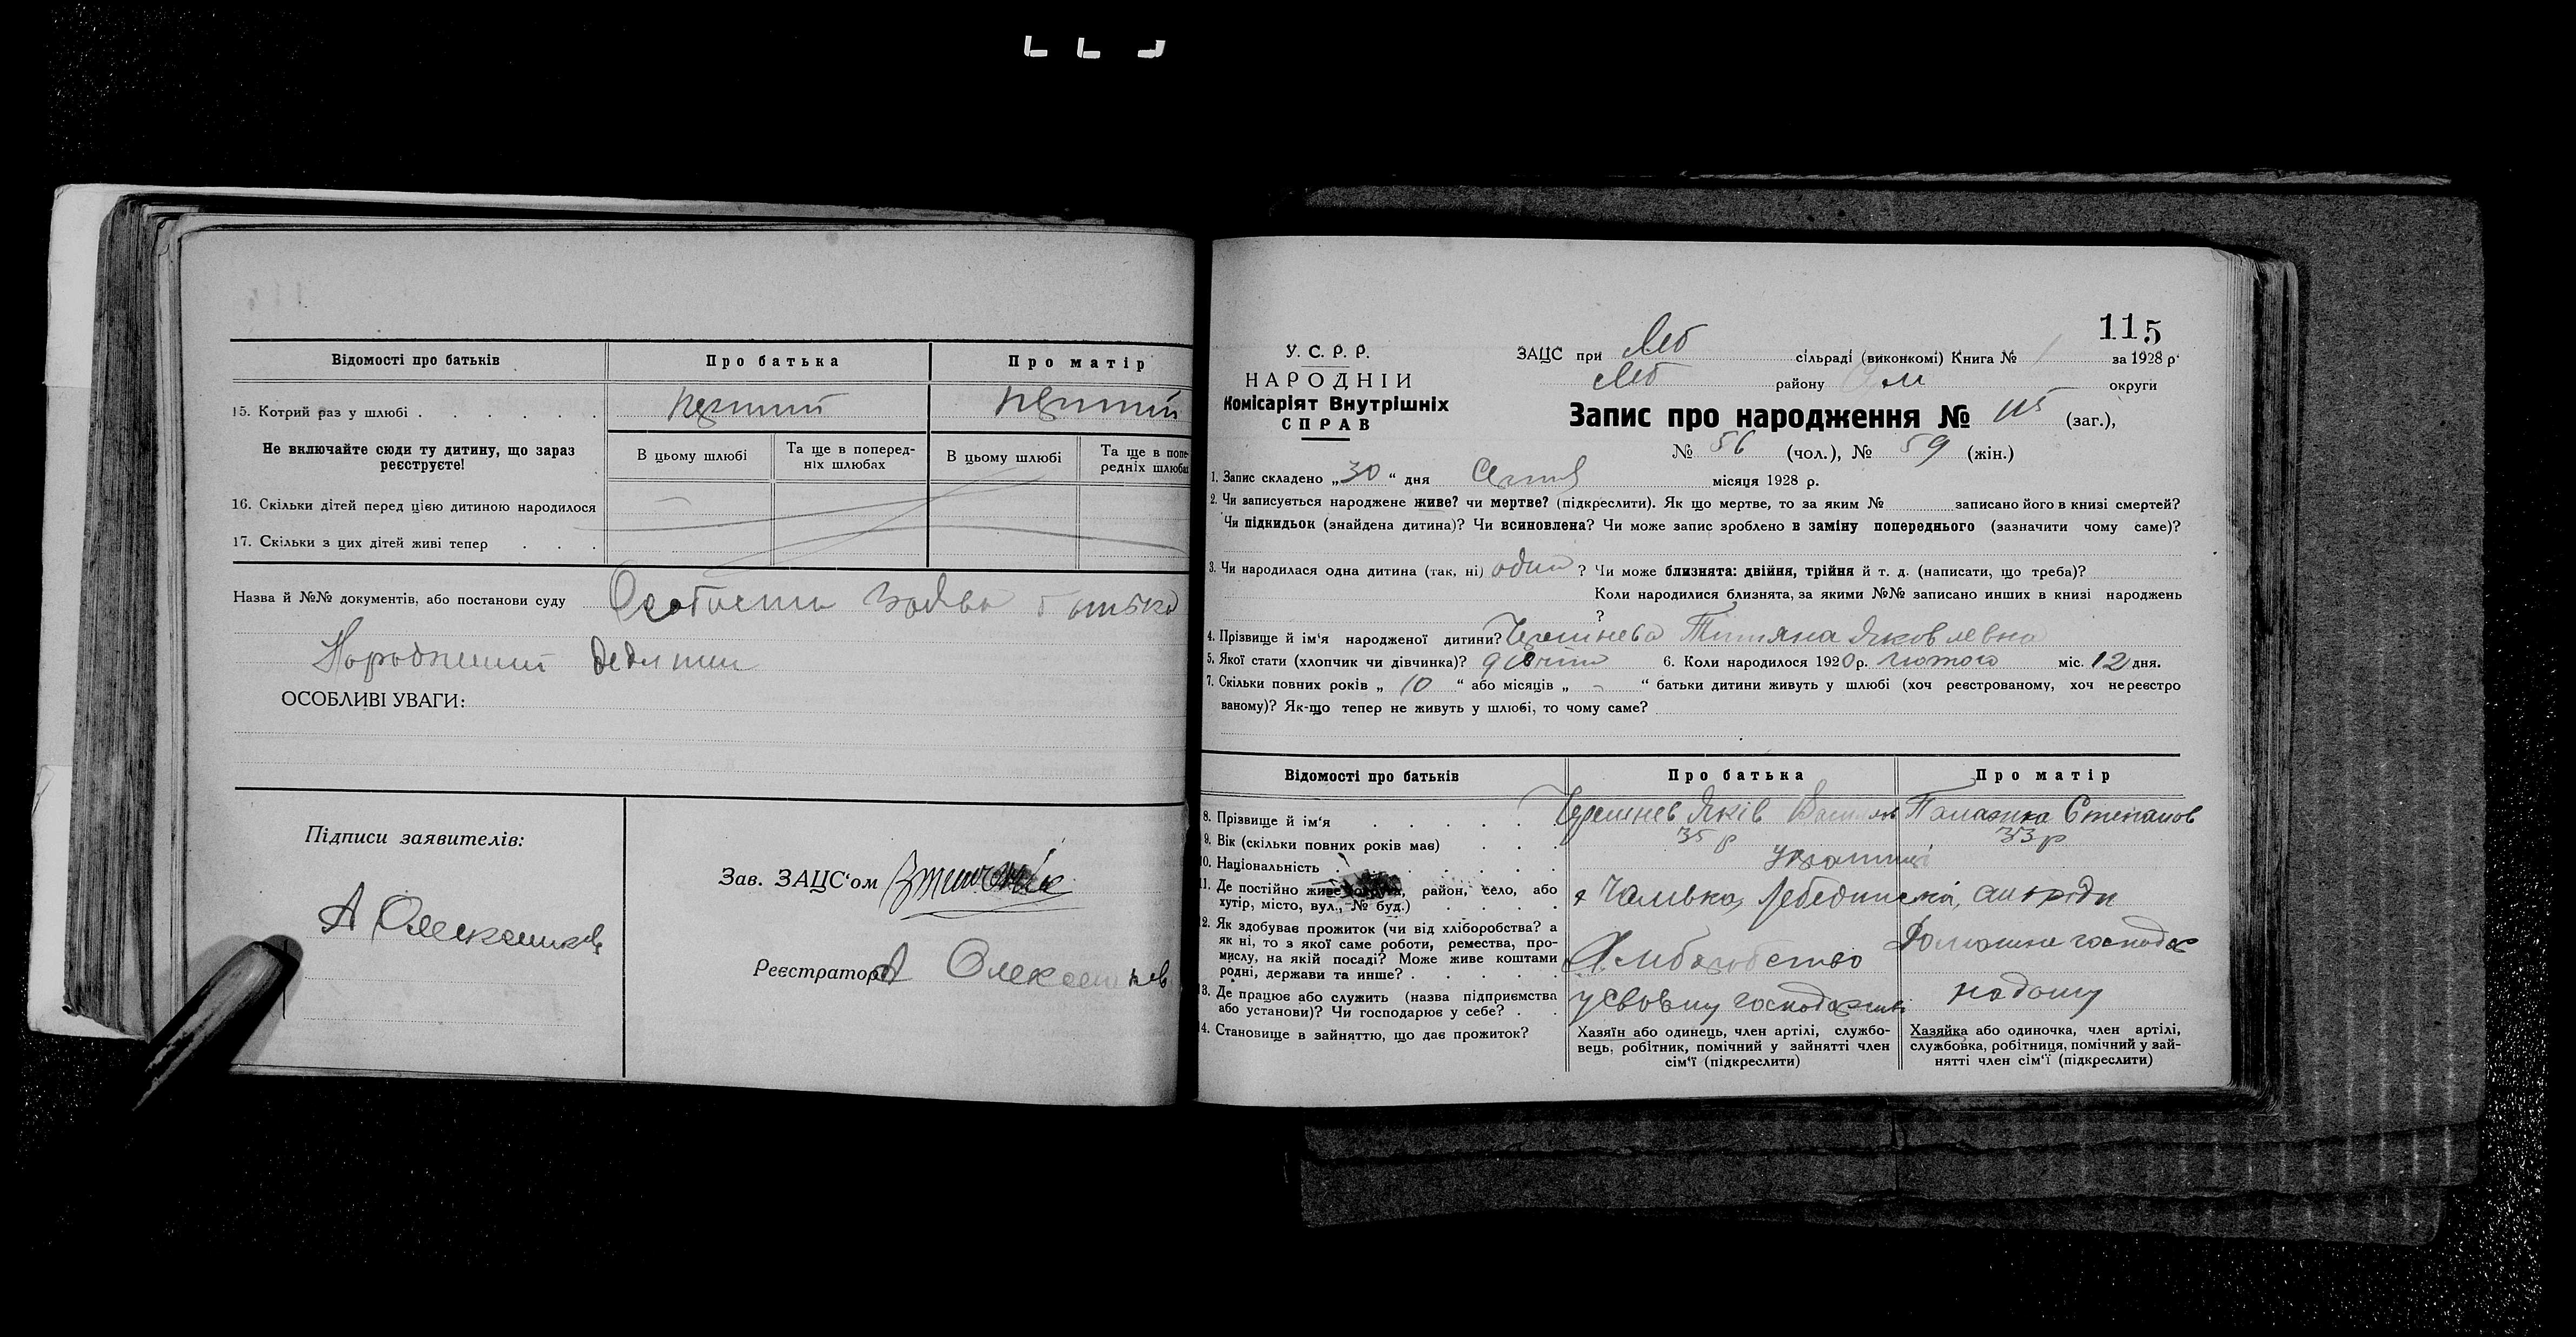 Відомості про батьків
Про батька
Про матір
15. Котрий раз у шлюбі
перший
перший
Не включайте сюди ту дитину, що зараз реєструєте!
В цьому шлюбі
Та ще в поперед-
ніх шлюбах
В цьому шлюбі
Та ще в попе-
редніх шлюбах
16. Скільки дітей перед цією дитиною народилося
17. Скільки з цих дітей живі тепер
Назва й №№ документів, або постанови суду Особиста заява батька
ОСОБЛИВІ УВАГИ:
Підписи заявителів:
Зав. ЗАЦС'ом
Реєстратор А
115
У. С. Р. Р.
НАРОДНІЙ
Комісаріят Внутрішніх
СПРАВ
ЗАЦС при Леб сільраді (виконкомі) Книга № 1 за 1928 р.
Леб району округи
Запис про народження № 115 (заг.),
№ 56 (чол.), № 59 (жін.)
1. Запис складено „30“ дня місяця 1928 р.
2. Чи записується народжене живе? чи мертве? (підкреслити). Як що мертве, то за яким № записано його в книзі смертей?
Чи підкидьок (знайдена дитина)? Чи всиновлена? Чи може запис зроблено в заміну попереднього (зазначити чому саме)?
3. Чи народилася одна дитина (так, ні) одна? Чи може близнята: двійня, трійня й т. д. (написати, що треба)?
Коли народилися близнята, за якими №№ записано инших в книзі народжень
?
4. Прізвище й ім'я народженої дитини? Тетяна Яковлевна
5. Якої стати (хлопчик чи дівчинка)? 6. Коли народилося 1920 р. лютого міс. 12 дня.
7. Скільки повних років „10“ або місяців „-“ батьки дитини живуть у шлюбі (хоч реєстрованому, хоч нереєстро
ваному)? Як-що тепер не живуть у шлюбі, то чому саме?
Відомості про батьків
Про батька
Про матір
8. Прізвище й ім'я
Яків
Палажка Степанов
9. Вік (скільки повних років має)
35 р
33 р
10. Національність
українці
11. Де постійно живе округа, район, село, або
хутір, місто, вул., № буд.)
12. Як здобуває прожиток (чи від хліборобства? а
як ні, то з якої саме роботи, ремества, про-
мислу, на якій посаді? Може живе коштами
родні, держави та инше?
Хліборобство
13. Де працює або служить (назва підприємства
або установи)? Чи господарює у себе?
у своєму господарстві
на дому
14. Становище в зайняттю, що дає прожиток?
Хазяїн або одинець, член артілі, службо-
вець, робітник, помічний у зайнятті член
сім'ї (підкреслити)
Хазяйка або одиночка, член артілі,
службовка, робітниця, помічний у зай-
нятті член сім'ї (підкреслити)